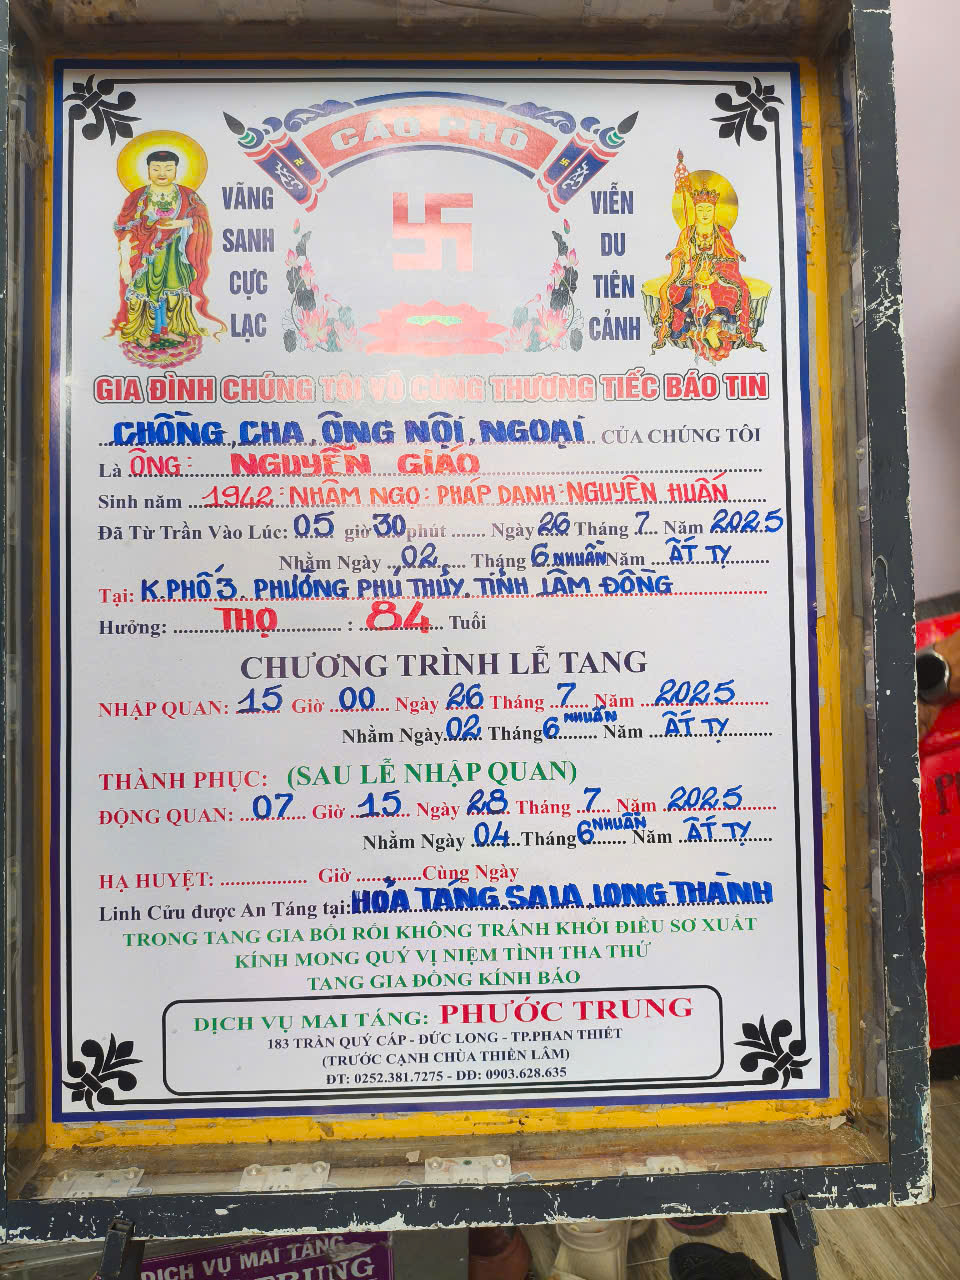 CÁO PHÓ
VÃNG
SANH
CỰC
LẠC
VIỄN
DU
TIÊN
CẢNH
GIA ĐÌNH CHÚNG TÔI VÔ CÙNG THƯƠNG TIẾC BÁO TIN
CHỒNG, CHA, ÔNG NỘI, NGOẠI CỦA CHÚNG TÔI
Là ÔNG: NGUYỄN GIÁO
Sinh năm 1942: NHÂM NGỌ: PHÁP DANH: NGUYÊN HUẤN
Đã Từ Trần Vào Lúc: 05 giờ 30 phút ....... Ngày 26 Tháng 7 Năm 2025
Nhằm Ngày 02 Tháng 6 NHUẦN Năm ẤT TỴ
Tại: K.PHỐ 3. PHƯỜNG PHÚ THỦY. TỈNH LÂM ĐỒNG
Hưởng: THỌ : 84 Tuổi
CHƯƠNG TRÌNH LỄ TANG
NHẬP QUAN: 15 Giờ 00 Ngày 26 Tháng 7 Năm 2025
Nhằm Ngày 02 Tháng 6 NHUẦN Năm ẤT TỴ
THÀNH PHỤC: (SAU LỄ NHẬP QUAN)
ĐỘNG QUAN: 07 Giờ 15 Ngày 28 Tháng 7 Năm 2025
Nhằm Ngày 04 Tháng 6 NHUẦN Năm ẤT TỴ
HẠ HUYỆT: ............... Giờ ............ Cùng Ngày
Linh Cửu được An Táng tại: HỎA TÁNG SALA LONG THÀNH
TRONG TANG GIA BỐI RỐI KHÔNG TRÁNH KHỎI ĐIỀU SƠ XUẤT
KÍNH MONG QUÝ VỊ NIỆM TÌNH THA THỨ
TANG GIA ĐỒNG KÍNH BÁO
DỊCH VỤ MAI TÁNG: PHƯỚC TRUNG
183 TRẦN QUÝ CÁP - ĐỨC LONG - TP.PHAN THIẾT
(TRƯỚC CẠNH CHÙA THIỀN LÂM)
ĐT: 0252.381.7275 - DĐ: 0903.628.635
DỊCH VỤ MAI TÁNG
TRUNG